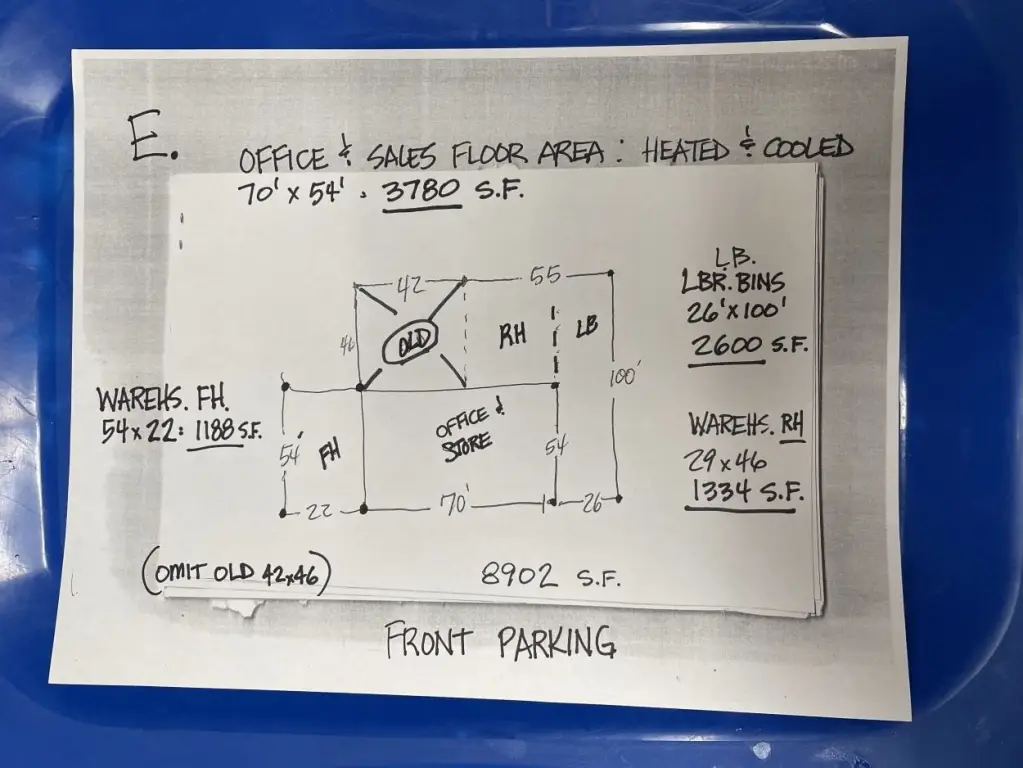 E.
OFFICE & SALES FLOOR AREA: HEATED & COOLED
70' x 54' . 3780 S.F.
L.B.
LBR. BINS
26' x 100'
2600 S.F.
42
55
46
OLD
RH
LB
100'
WAREHS. FH.
54 x 22: 1188 S.F.
OFFICE &
STORE
WAREHS. RH
29 x 46
1334 S.F.
54'
FH
54
22
70'
26
(OMIT OLD 42x46)
8902 S.F.
FRONT PARKING